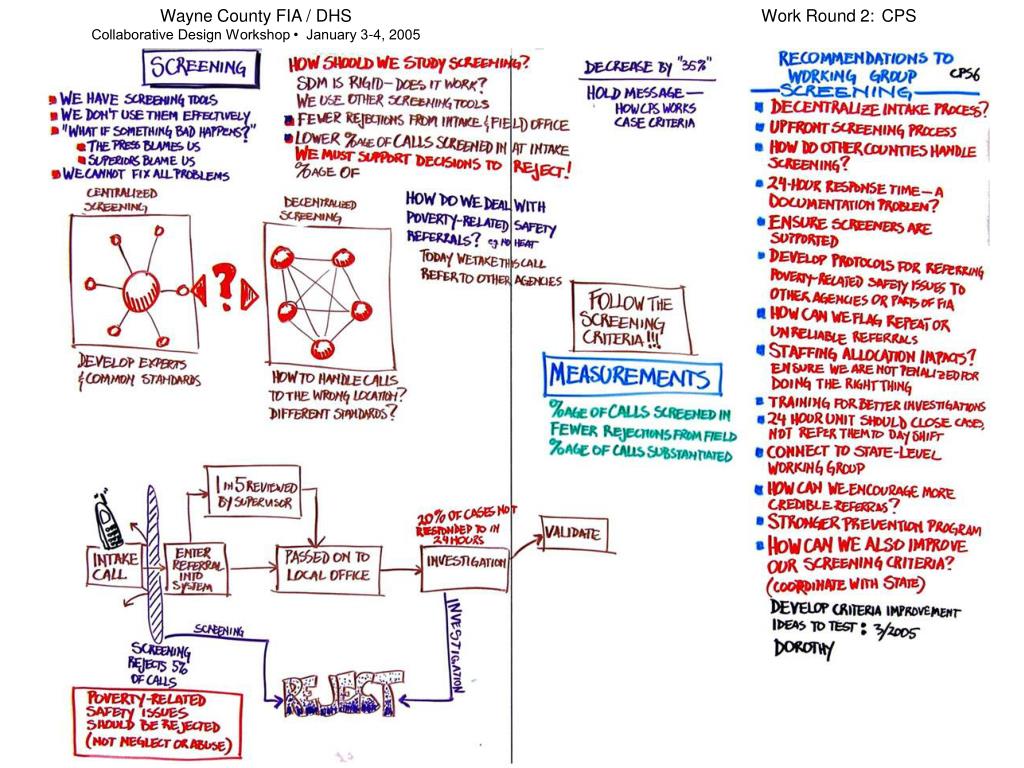 Wayne County FIA / DHS
Collaborative Design Workshop • January 3-4, 2005
Work Round 2: CPS
SCREENING
WE HAVE SCREENING TOOLS
WE DON'T USE THEM EFFECTIVELY
"WHAT IF SOMETHING BAD HAPPENS?"
THE PRESS BLAMES US
SUPERIORS BLAME US
WE CANNOT FIX ALL PROBLEMS
HOW SHOULD WE STUDY SCREENING?
SDM IS RIGID - DOES IT WORK?
WE USE OTHER SCREENING TOOLS
FEWER REJECTIONS FROM INTAKE & FIELD OFFICE
LOWER %AGE OF CALLS SCREENED IN AT INTAKE
WE MUST SUPPORT DECISIONS TO REJECT!
%AGE OF
CENTRALIZED
SCREENING
?
DEVELOP EXPERTS
& COMMON STANDARDS
DECENTRALIZED
SCREENING
HOW TO HANDLE CALLS
TO THE WRONG LOCATION?
DIFFERENT STANDARDS?
HOW DO WE DEAL WITH
POVERTY-RELATED SAFETY
REFERRALS? eg NO HEAT
TODAY WE TAKE THIS CALL
REFER TO OTHER AGENCIES
DECREASE BY "35%"
HOLD MESSAGE —
HOW CPS WORKS
CASE CRITERIA
FOLLOW THE
SCREENING
CRITERIA!!!
MEASUREMENTS
%AGE OF CALLS SCREENED IN
FEWER REJECTIONS FROM FIELD
%AGE OF CALLS SUBSTANTIATED
1 IN 5 REVIEWED
BY SUPERVISOR
INTAKE
CALL
ENTER
REFERRAL
INTO
SYSTEM
PASSED ON TO
LOCAL OFFICE
20% OF CASES NOT
RESPONDED TO IN
24 HOURS
INVESTIGATION
VALIDATE
SCREENING
INVESTIGATION
REJECT
SCREENING
REJECTS 5%
OF CALLS
POVERTY-RELATED
SAFETY ISSUES
SHOULD BE REJECTED
(NOT NEGLECT OR ABUSE)
RECOMMENDATIONS TO
WORKING GROUP
CPS6
SCREENING
DECENTRALIZE INTAKE PROCESS?
UPFRONT SCREENING PROCESS
HOW DO OTHER COUNTIES HANDLE
SCREENING?
24-HOUR RESPONSE TIME - A
DOCUMENTATION PROBLEM?
ENSURE SCREENERS ARE
SUPPORTED
DEVELOP PROTOCOLS FOR REFERRING
POVERTY-RELATED SAFETY ISSUES TO
OTHER AGENCIES OR PARTS OF FIA
HOW CAN WE FLAG REPEAT OR
UNRELIABLE REFERRALS
STAFFING ALLOCATION IMPACTS?
ENSURE WE ARE NOT PENALIZED FOR
DOING THE RIGHT THING
TRAINING FOR BETTER INVESTIGATIONS
24 HOUR UNIT SHOULD CLOSE CASES,
NOT REFER THEM TO DAY SHIFT
CONNECT TO STATE-LEVEL
WORKING GROUP
HOW CAN WE ENCOURAGE MORE
CREDIBLE REFERRAS?
STRONGER PREVENTION PROGRAM
HOW CAN WE ALSO IMPROVE
OUR SCREENING CRITERIA?
(COORDINATE WITH STATE)
DEVELOP CRITERIA IMPROVEMENT
IDEAS TO TEST: 3/2005
DOROTHY